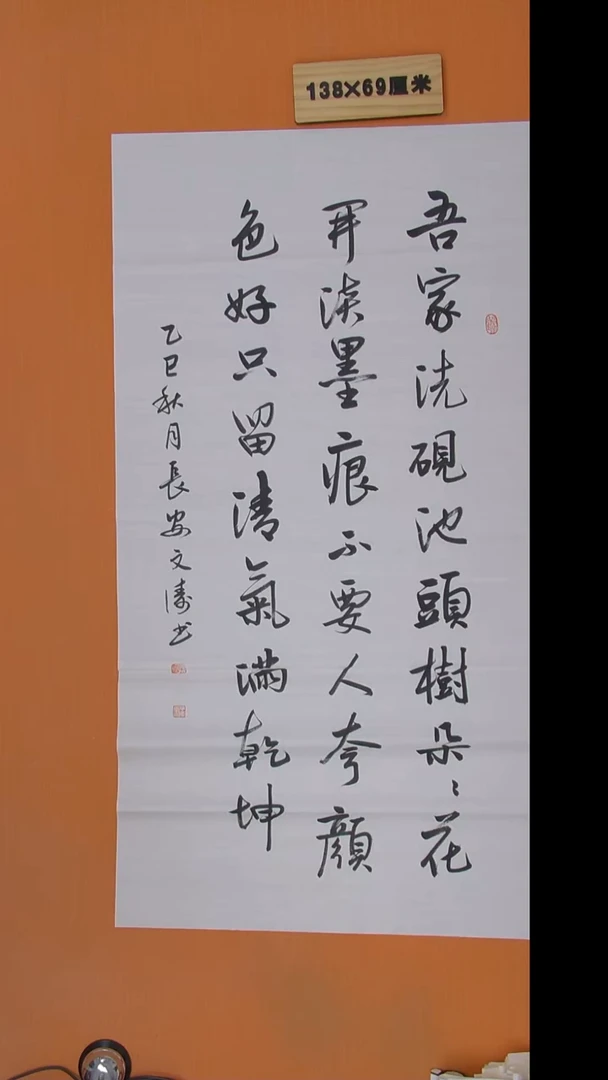 138×69厘米
吾家洗硯池頭樹朵〻花
開淡墨痕不要人夸顏
色好只留清氣滿乾坤
乙巳秋月長安文濤书